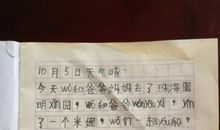 10月5日天气晴
今天wǒ和爸爸妈妈去了珠海圆
明xīn园，wǒ和爸爸wányóuxì，yíng
了一个米妮，wǒ们一起yóuwán，